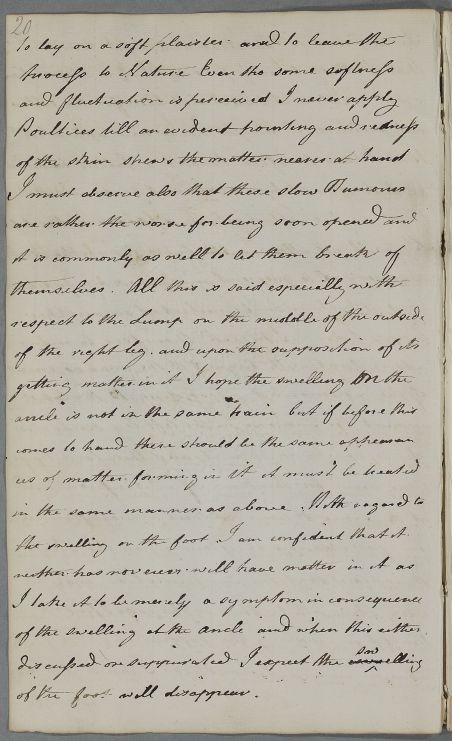 20
to lay on a soft plaister and to leave the
process to Nature Even tho some softness
and fluctuation is perceived I never apply
Poultices till an evident pointing and redness
of the skin shews the matter nearer at hand
I must observe also that these slow Tumours
are rather the worse for being soon opened and
it is commonly as well to let them break of
themselves. All this is said especially with
respect to the Lump on the middle of the outside
of the right leg. and upon the supposition of its
getting matter in it I hope the swelling on the
ancle is not in the same train but if before this
comes to hand there should be the same appearan
ces of matter forming in it it must be treated
in the same manner as above. With regard to
the swelling on the foot I am confident that it
neither has nor ever will have matter in it as
I take it to be merely a symptom in consequence
of the swelling at the ancle and when this either
discussed or suppurated I expect the swelling
of the foot will disappear.